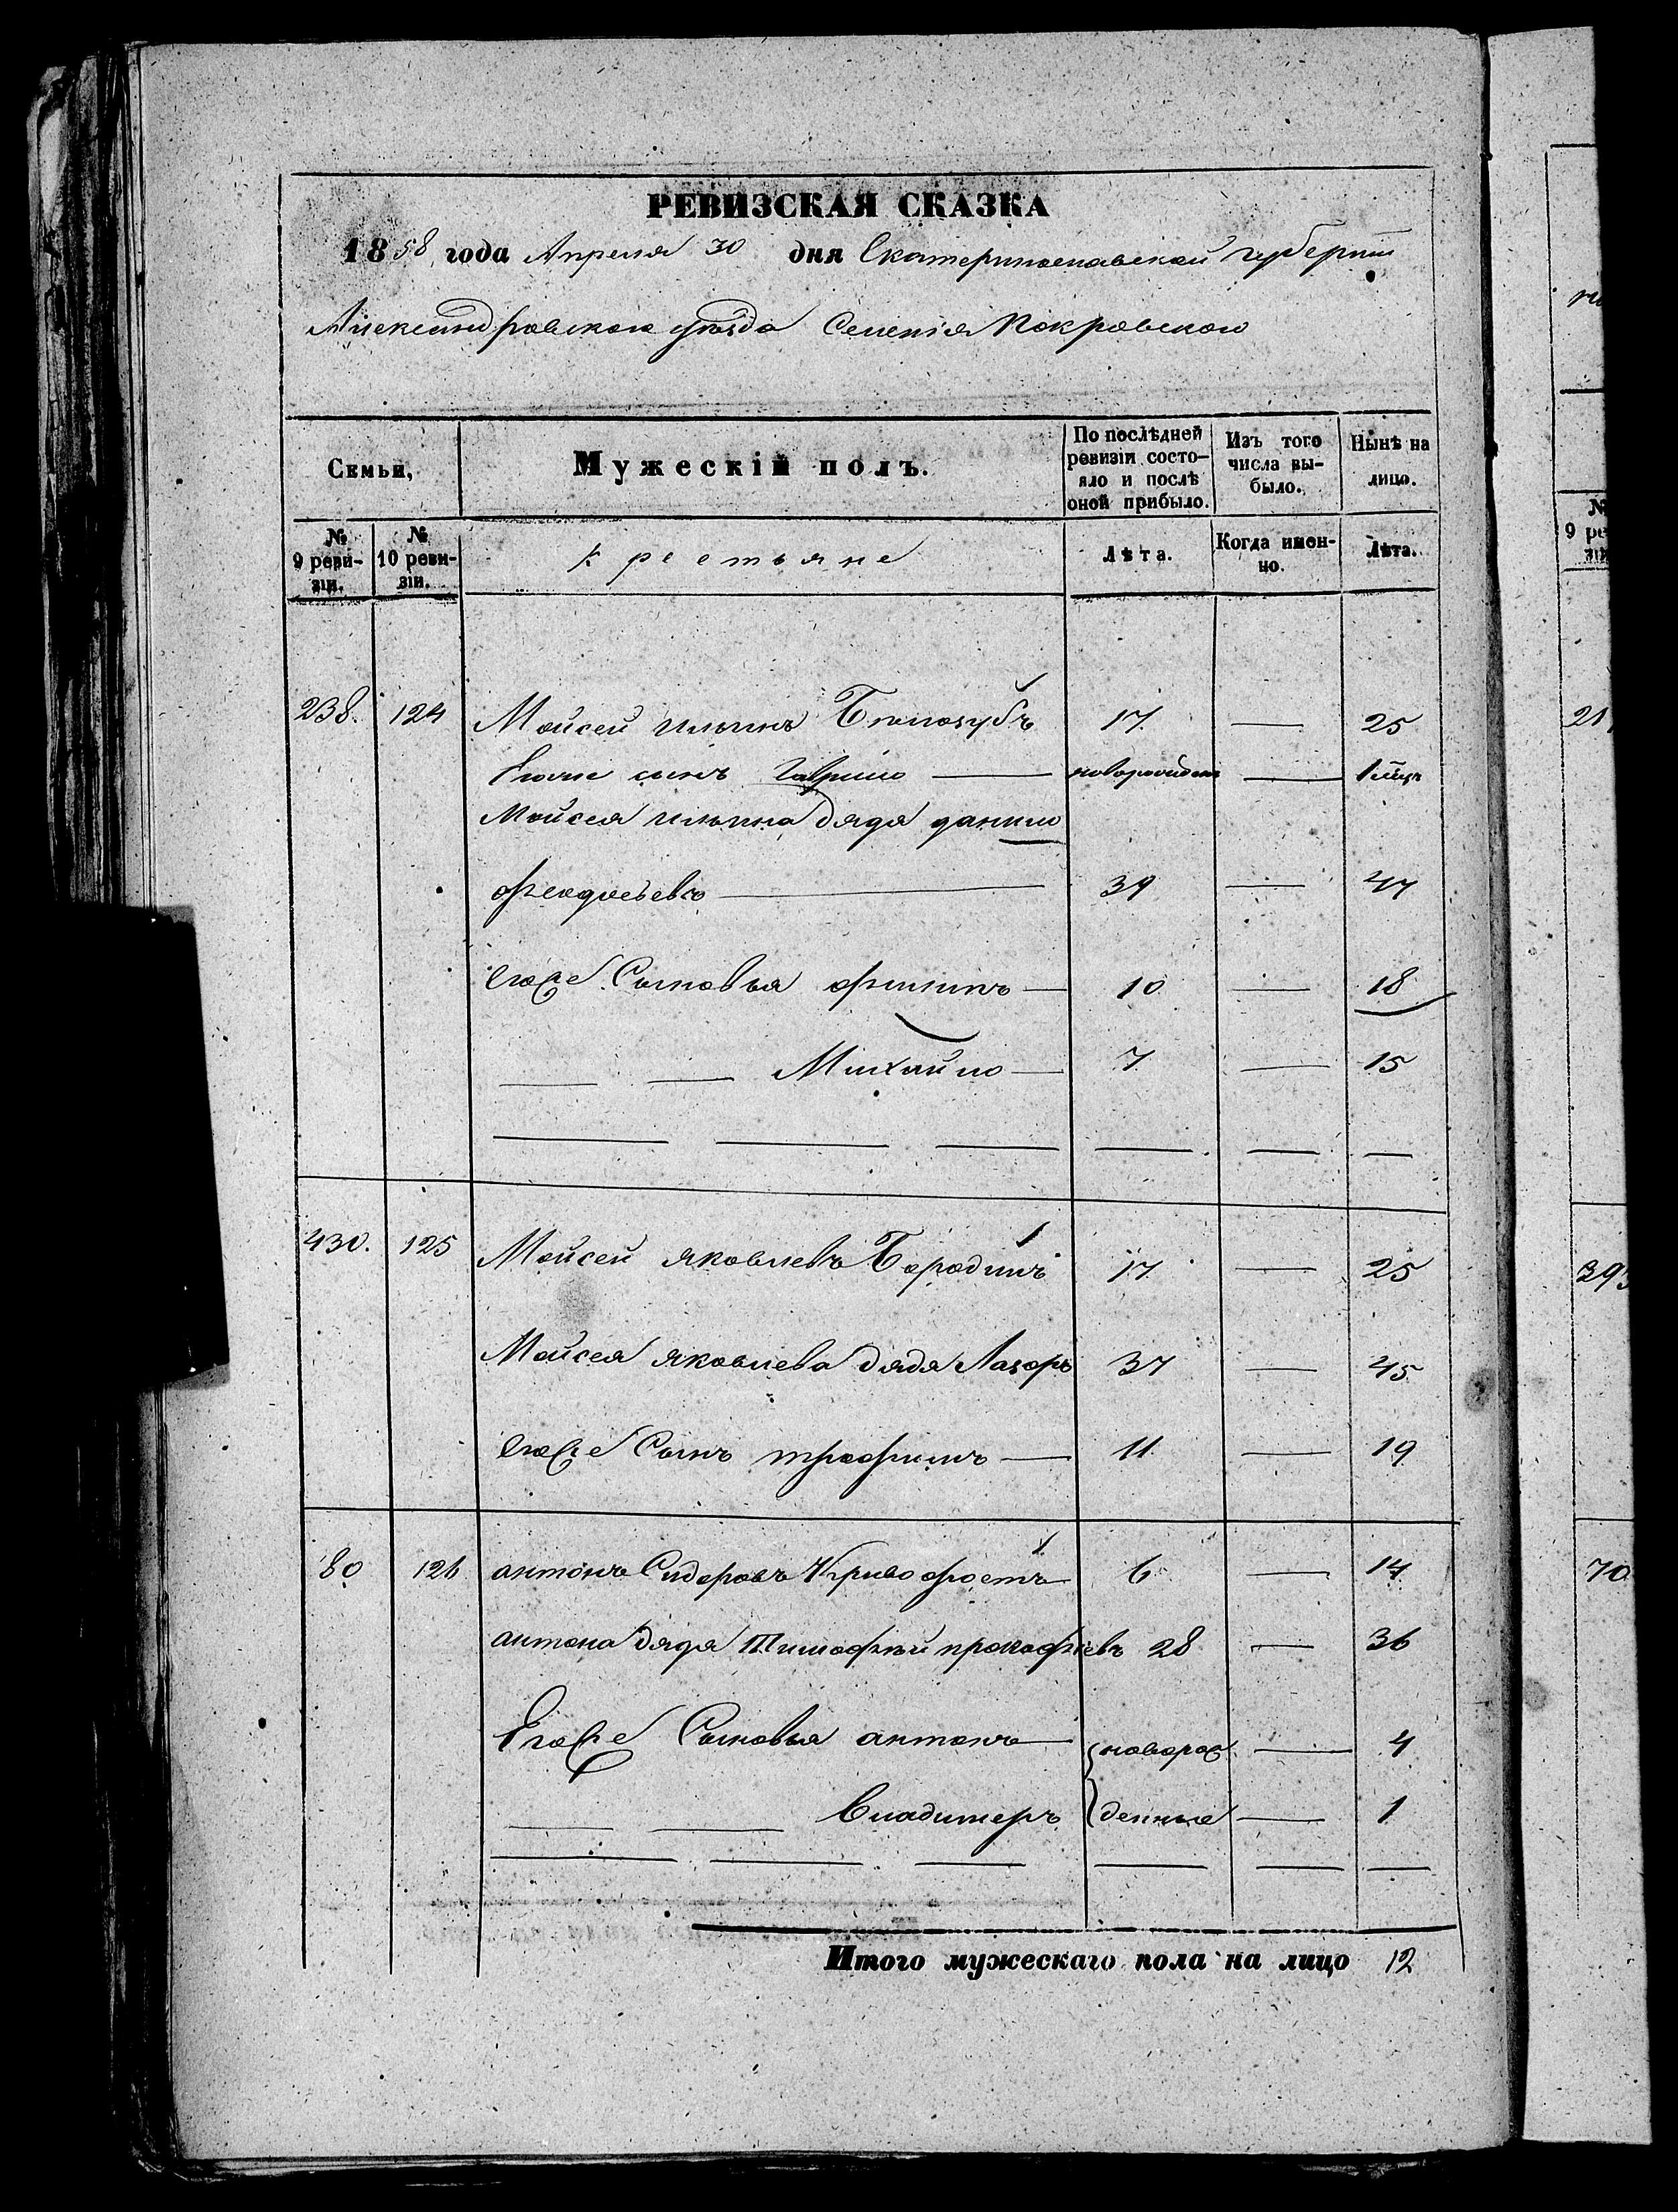 РЕВИЗСКАЯ СКАЗКА
1858 года Апреля 30 дня Екатеринославской губернiи
Александровского уѣзда Селенiя Покровского
Семьи,
Мужескiй полъ.
По послѣдней ревизiи состояло и послѣ оной прибыло.
Изъ того числа выбыло.
Нынѣ на лицо.
№ 9 ревизiи.
№ 10 ревизiи.
Крестьяне
Лѣта.
Когда именно.
Лѣта.
238. 124 Мойсей Ильинъ Бѣлозубъ 17 — 25
Его же сынъ Гаврило — новорожденъ — 1 мѣсц
Мойсея Ильина дядя данило
Феодосьевъ — 39 — 47
Его же Сыновья филипъ — 10 — 18
— — Михайло — 7 — 15
430. 125 Мойсей яковлевъ Бородинъ 17 — 25
Мойсея яковлева дядя Лазорь 37 — 45
Его же Сынъ трофимъ — 11 — 19
80 126 антонъ Сидоровъ Кривофостъ 6 — 14
антона дядя Тимофѣй прокофьевъ 28 — 36
Его же Сыновья антонъ — новорож — 4
— — Владимеръ денные — 1
Итого мужескаго пола на лицо 12
№
9 ре
зiи
21
393
70